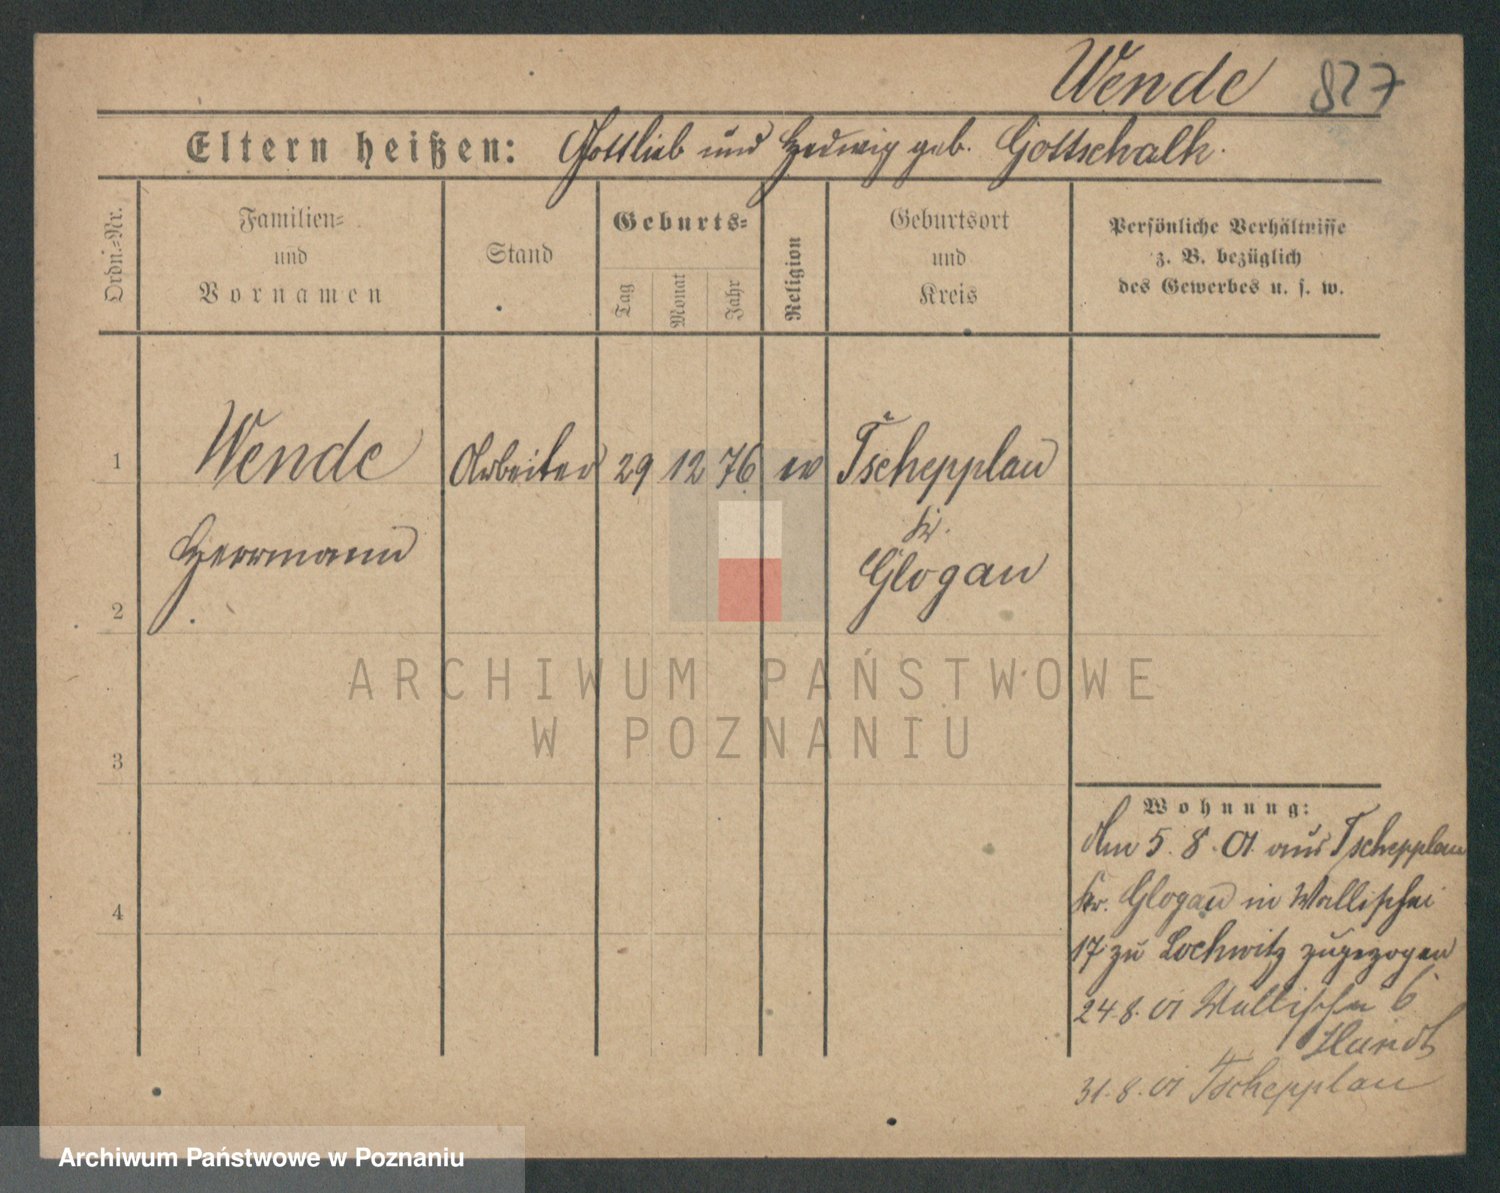 Wende 827
Eltern heißen: Gottlieb und Hedwig geb. Gottschalk.
Ordn.-Nr.
Familien-
und
Vornamen
Stand
Geburts-
Tag
Monat
Jahr
Religion
Geburtsort
und
Kreis
Persönliche Verhältnisse
z. B. bezüglich
des Gewerbes u. s. w.
1 Wende Arbeiter 29 12 76 ev Tschepplau
Kr.
Herrmann Glogau
2
3
4
ARCHIWUM PAŃSTWOWE
W POZNANIU
Wohnung:
Am 5. 8. 01 aus Tschepplau
Kr. Glogau in Wallischei
17 zu Lochwitz zugezogen
24.8.01 Wallischei 6
31.8.01 Tschepplau
Archiwum Państwowe w Poznaniu